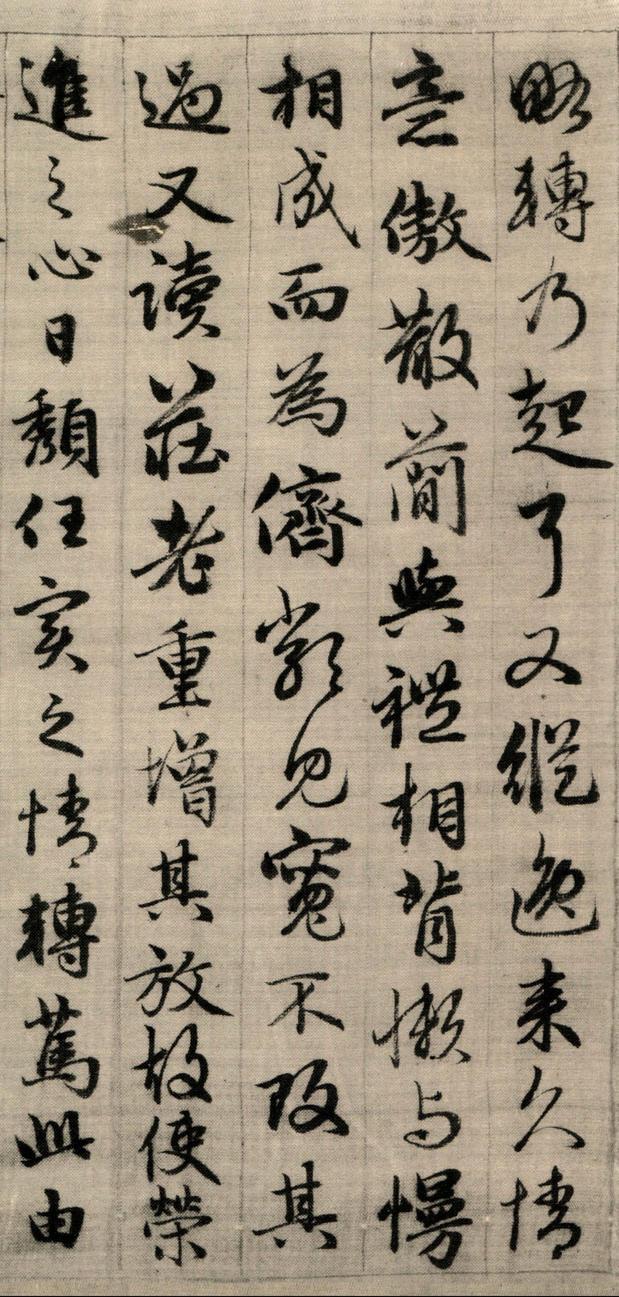 略轉乃起了又縱逸来久情
意傲散蕳與禮相背懶与慢
相成而為儕類見寬不攻其
過又讀莊老重增其放故使榮
進之心日頹任実之情轉篤此由